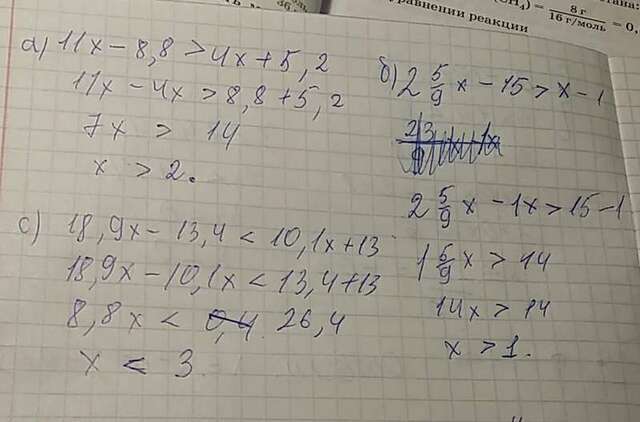 CH₄) = 8 г / 16 г/моль = 0,
уравнении реакции
а) 11x - 8,8 > 4x + 5,2
11x - 4x > 8,8 + 5,2
7x > 14
x > 2.
б) 2 5/9 x - 15 > x - 1
2 5/9 x - 1x > 15 - 1
1 5/9 x > 14
14x > 14
x > 1.
с) 18,9x - 13,4 < 10,1x + 13
18,9x - 10,1x < 13,4 + 13
8,8x < 26,4
x < 3